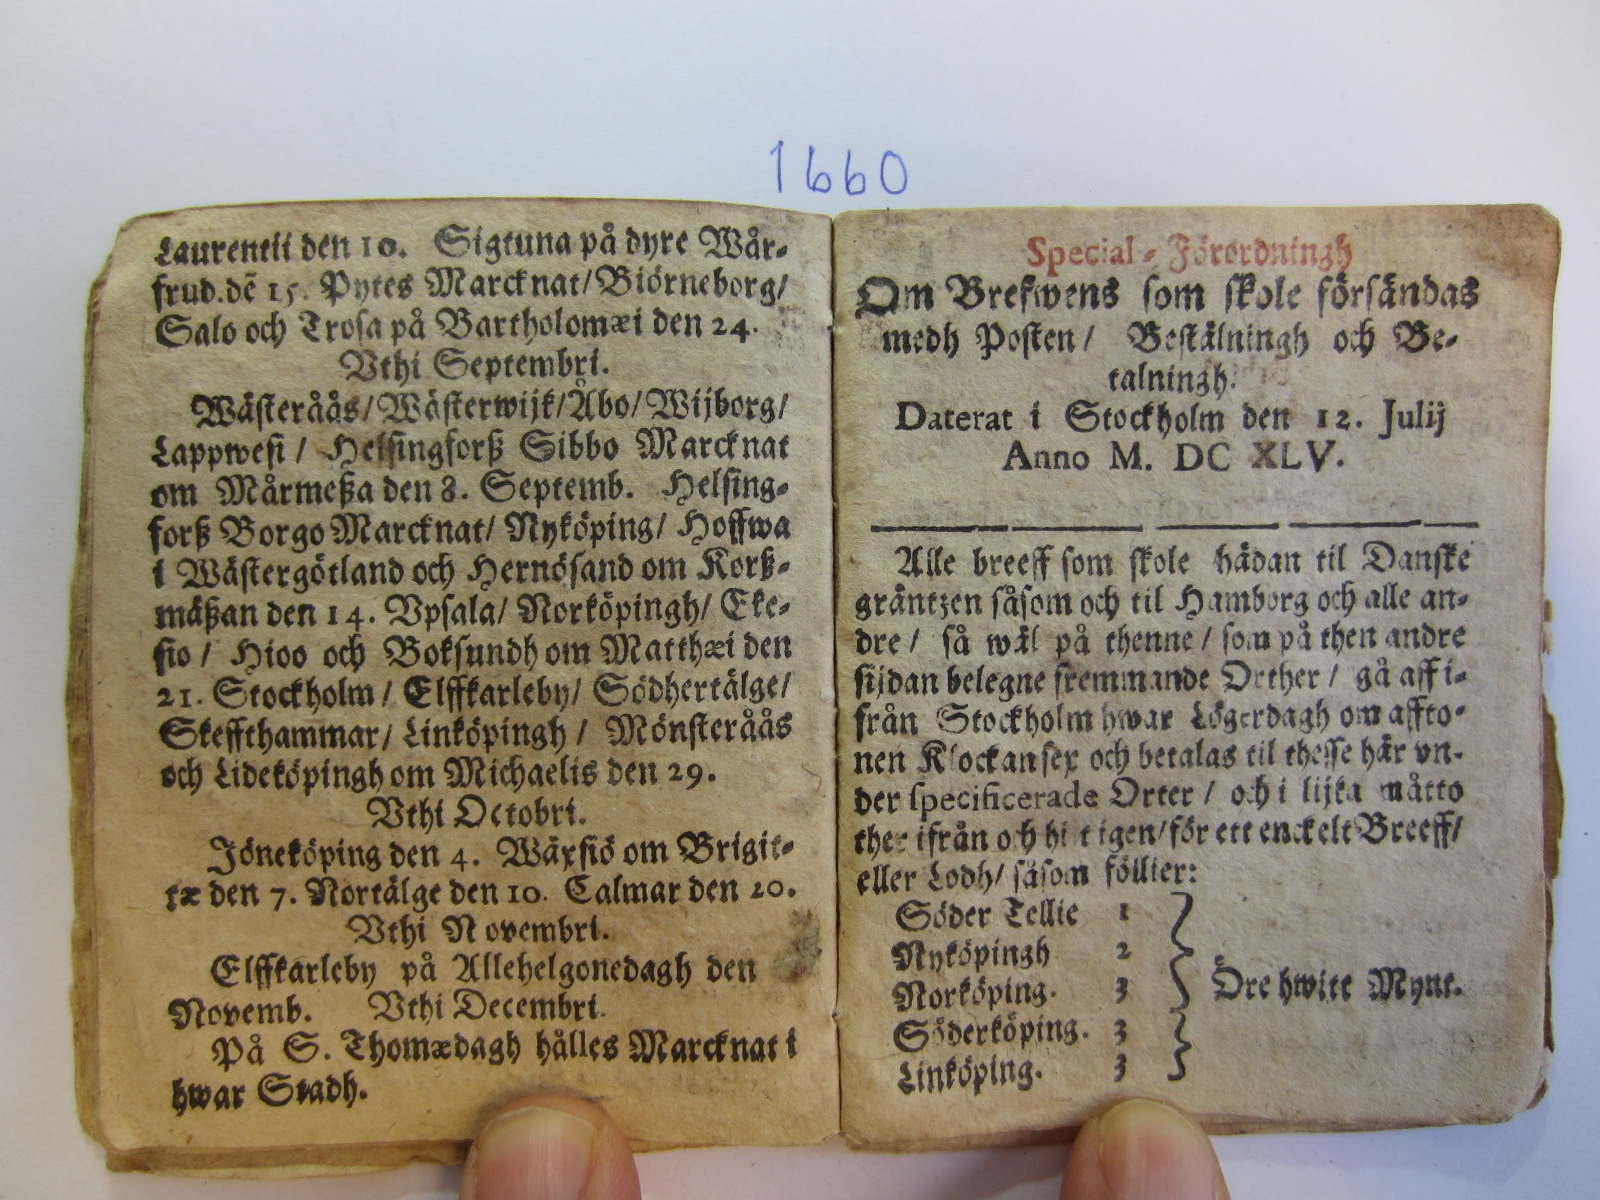 1660
Laurentii den 10. Sigtuna på dyre Wår-
frud.dē 15. Pytes Marcknat/Biörneborg/
Salo och Trosa på Bartholomæi den 24.
Vthi Septembri.
Wästeråås/Wästerwijk/Åbo/Wijborg/
Lappwesi/ Helsingforß Sibbo Marcknat
om Mårmeßa den 8. Septemb. Helsing-
forß Borgo Marcknat/ Nyköping/ Hoffwa
i Wästergötland och Hernösand om Korß-
mäßan den 14. Vpsala/ Norköpingh/ Eke-
sio/ Hioo och Boksundh om Matthæi den
21. Stockholm/ Elffkarleby/ Södhertälge/
Skeffthammar/ Linköpingh/ Mönsteråås
och Lideköpingh om Michaelis den 29.
Vthi Octobri.
Jöneköping den 4. Wäxsiö om Brigit-
tæ den 7. Nortälge den 10. Calmar den 20.
Vthi Novembri.
Elffkarleby på Allehelgonedagh den
Novemb. Vthi Decembri.
På S. Thomædagh hålles Marcknat i
hwar Stadh.
Special-Förordningh
Om Brefwens som skole försändas
medh Posten/ Bestälningh och Be-
talningh.
Daterat i Stockholm den 12. Julij
Anno M. DC XLV.
Alle breeff som skole hädan til Danske
gräntzen såsom och til Hamborg och alle an-
dre/ så wäl på thenne/ som på then andre
sijdan belegne fremmande Orther/ gå aff i-
från Stockholm hwar Lögerdagh om affto-
nen Klockan sex och betalas til thesse här vn-
der specificerade Orter/ och i lijka måtto
ther ifrån och hit igen/för ett enckelt Breeff/
eller Lodh/ såsom föllier:
Söder Tellie 1
Nyköpingh 2
Norköping. 3 Öre hwitt Mynt.
Söderköping. 3
Linköping. 3